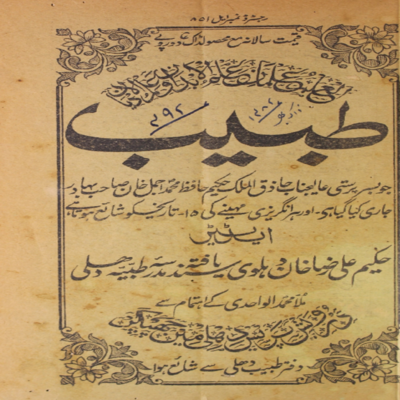 رجسٹرڈ نمبر ایل ۸۵۱
قیمت سالانہ مع محصولڈاک دو روپے
طبیب
جو بسرپرستی عالیجناب حاذق الملک حکیم حافظ محمد اجمل خان صاحب بہادر
جاری کیا گیا ہی۔ اور ہر انگریزی مہینے کی ۱۵۔ تاریخ کو شائع ہوتا ہے
ایڈیٹر
حکیم علی رضا خان دہلوی سند یافتہ مدرسہ طبیہ دہلی
ملا محمد الواحدی کے اہتمام سے
دفتر طبیب دہلی سے شائع ہوا